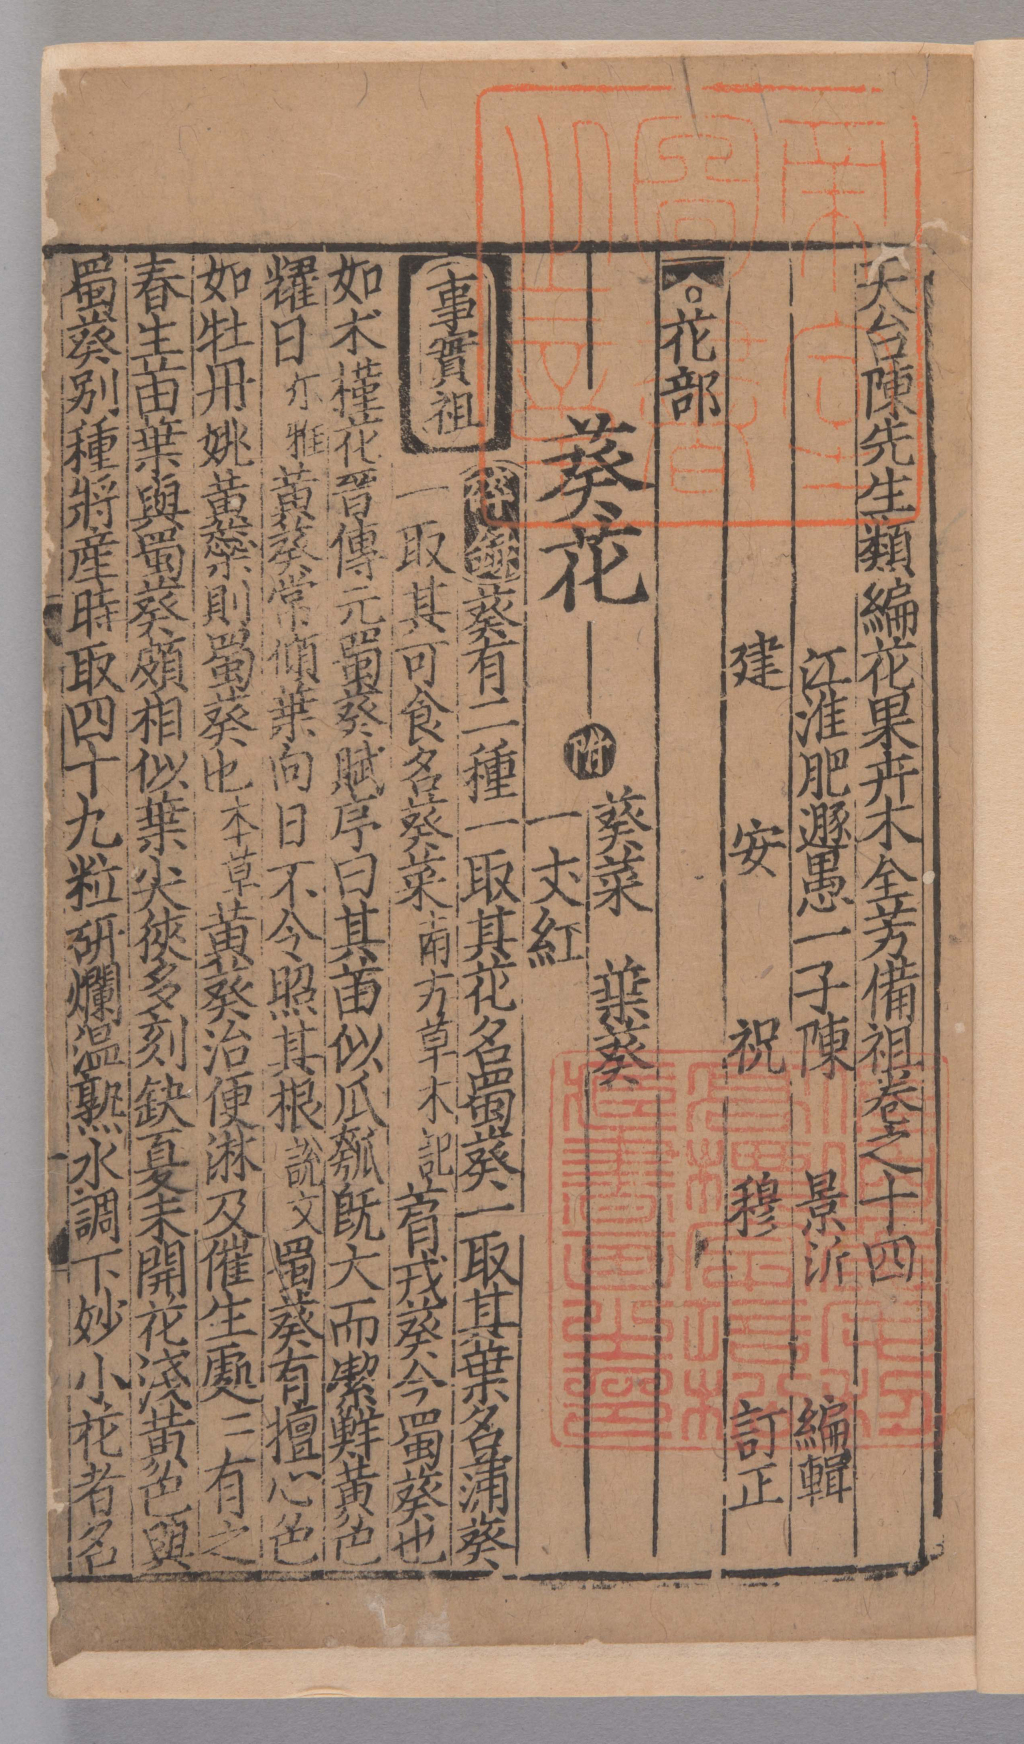 天台陳先生類編花果卉木全芳備祖卷之十四
江淮肥遯愚一子陳 景沂 編輯
建安祝 穆 訂正
花部
葵花 附 葵菜 葉葵
一丈紅
事實祖
碎錄葵有二種一取其花名蜀葵一取其葉名蒲葵
一取其可食名葵菜南方草木記 菺戎葵今蜀葵也
如木槿花晉傳元蜀葵賦序曰其苗似瓜瓠既大而潔鮮黃色
耀日尔雅黃葵常傾葉向日不令照其根說文蜀葵有擅心色
如牡丹姚黃蘂則蜀葵也本草黃葵治便淋及催生處三有之
春生苗葉與蜀葵頗相似葉尖狹多刻缺夏末開花淺黃色與
蜀葵别種將産時取四十九粒研爛温熟水調下妙小花者名